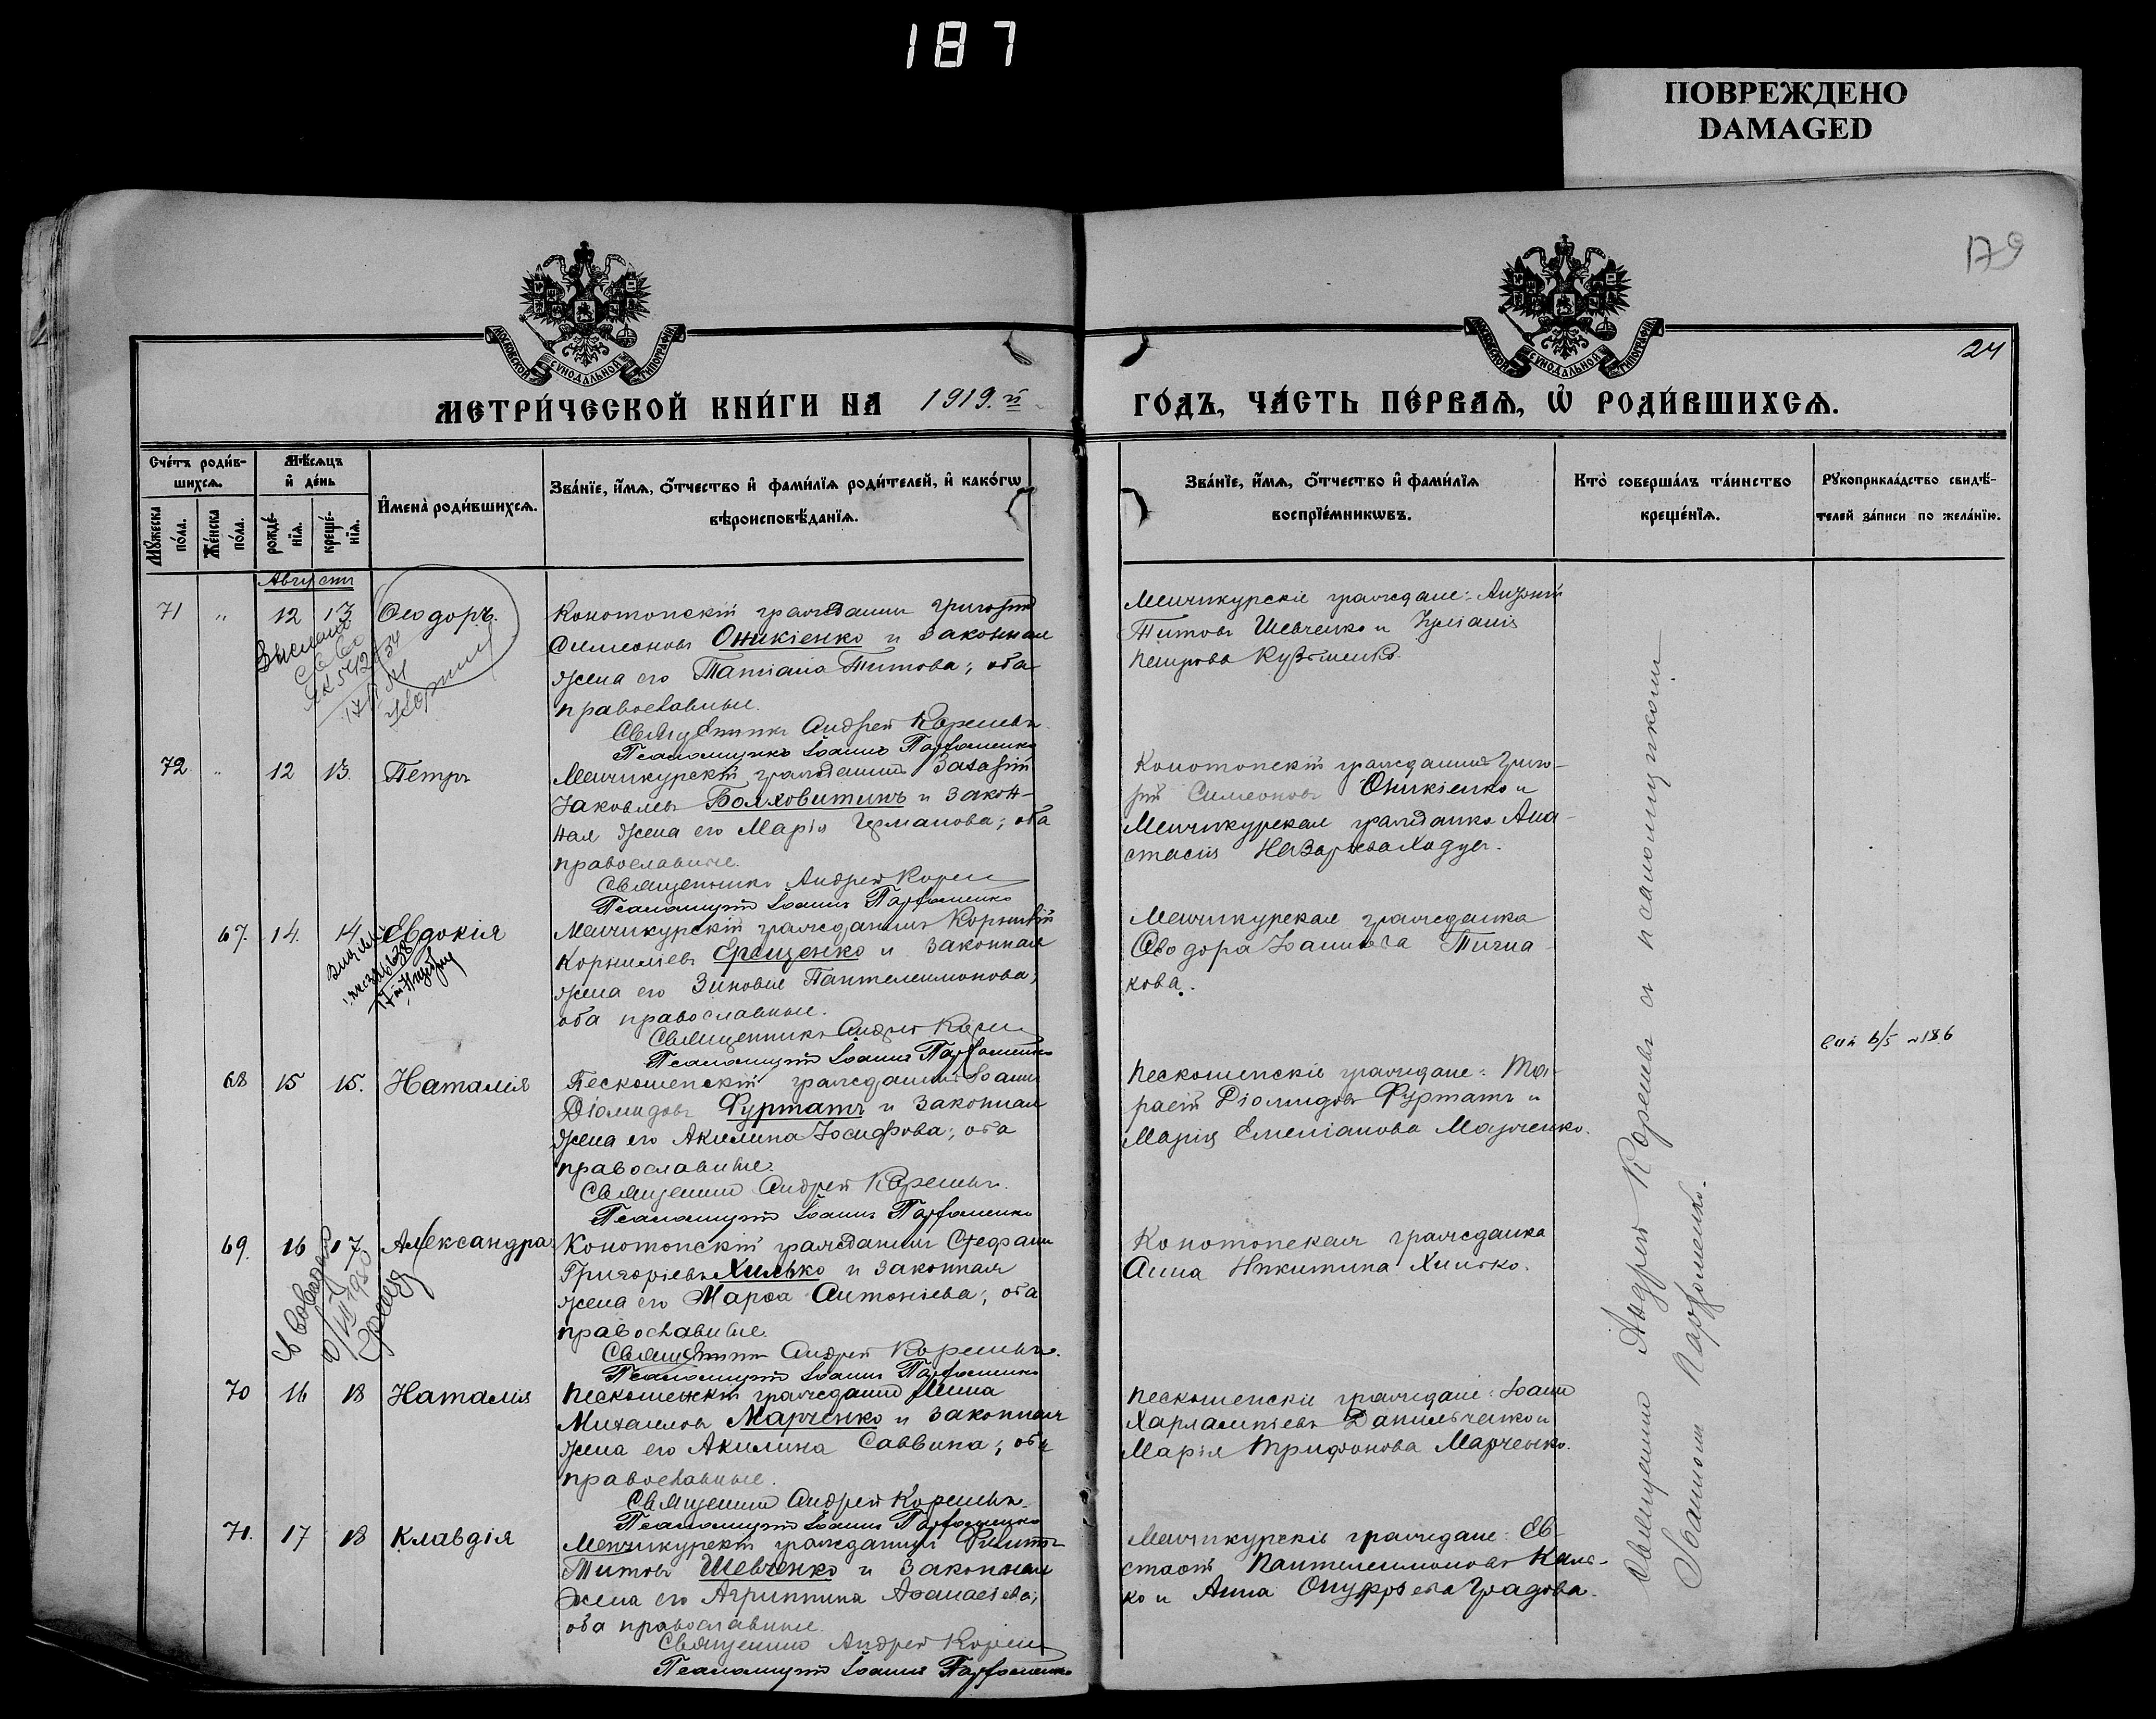 187
ПОВРЕЖДЕНО
DAMAGED
179
24
МОСКОВСКОЙ СѴНОДАЛЬНОЙ ТИПОГРАФІИ
МОСКОВСКОЙ СѴНОДАЛЬНОЙ ТИПОГРАФІИ
МЕТРИ́ЧЕСКОЙ КНИ́ГИ НА 1919.й
ГО́ДЪ, ЧА́СТЬ ПЕ́РВАѦ, Ѡ҆ РОДИ́ВШИХСѦ.
Сче́тъ роди́в-
шихсѧ.
Мѣ́сѧцъ
и҆ де́нь
Мꙋ́жеска по́ла.
Же́нска по́ла.
рожде́-
нїѧ.
креще́-
нїѧ.
И҆мена̀ роди́вшихсѧ.
Зва́нїе, и҆́мѧ, ѻ҆́тчество и҆ фами́лїѧ роди́телей, и҆ како́гѡ
вѣроисповѣ́данїѧ.
Зва́нїе, и҆́мѧ, ѻ҆́тчество и҆ фами́лїѧ
воспрїе́мникѡвъ.
Кто̀ соверша́лъ та́инство
креще́нїѧ.
Рꙋкоприкла́дство свидѣ́-
телей за́писи по жела́нїю.
Августъ
71 " 12 13 Ѳеодоръ.
Конотопскій гражданинъ Григорій
Симеоновъ Оникіенко и законная
жена его Татіана Титова; оба
православные.
Священникъ Андрей Корешевъ
Псаломщикъ Іоаннъ Парѳоменко
Менчикурскіе граждане:
Титовъ Шевченко и Іуліанія
Петрова Кузьменко.
72 " 12 13. Петръ
Менчикурскій гражданинъ
Іаковлевъ Болховитинъ и закон-
ная жена его Марія Германова; оба
православные.
Священникъ Андрей Корешевъ
Псаломщикъ Іоаннъ Парѳоменко
Конотопскій гражданинъ Григо-
рій Симеоновъ Оникіенко и
Менчикурская гражданка Ана-
стасія Назарьева
67. 14. 14. Евдокія
Менчикурскій гражданинъ Корнилій
Корниліевъ Ерещенко и законная
жена его Зиновія Пантелеимонова;
оба православные.
Священникъ Андрей Корешевъ
Псаломщикъ Іоаннъ Парѳоменко
Менчикурская гражданка
Ѳеодора Іоаннова
кова.
68 15 15. Наталія
Пескошенскій гражданинъ Іоаннъ
Діомидовъ Фурматъ и законная
жена его Акилина Іосифова; оба
православные.
Священникъ Андрей Корешевъ.
Псаломщикъ Іоаннъ Парѳоменко
Пескошенскіе граждане: Та-
расій Діомидовъ Фурматъ и
Марія Емеліанова Марченко.
69. 16 17 Александра
Конотопскій гражданинъ Стефанъ
Григоріевъ Хилько и законная
жена его Марѳа Антоніева; оба
православные.
Священникъ Андрей Корешевъ.
Псаломщикъ Іоаннъ Парѳоменко
Конотопская гражданка
Анна Никитина Хилько.
70 16 18 Наталія
Пескошенскій гражданинъ
Михаиловъ Марченко и законная
жена его Акилина Саввина; оба
православные.
Священникъ Андрей Корешевъ.
Псаломщикъ Іоаннъ Парѳоменко
Пескошенскіе граждане: Іоаннъ
Харлампіевъ Данильченко и
Марія Трифонова Марченко.
71. 17 18 Клавдія
Менчикурскій гражданинъ Филиппъ
Титовъ Шевченко и законная
жена его Агриппина Аѳанасіева;
оба православные.
Священникъ Андрей Корешевъ
Псаломщикъ Іоаннъ Парѳоменко
Менчикурскіе граждане: Ев-
стаѳій Пантелеимоновъ
ко и Анна Онуфріева Градова.
Священникъ Андрей Корешевъ съ псаломщикомъ
Іоанномъ Парѳоменко.